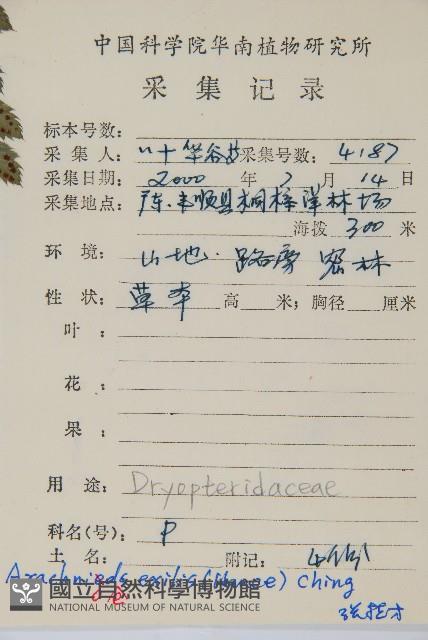 中国科学院华南植物研究所
采集记录
标本号数：
采集人： 采集号数： 4187
采集日期： 2000 年 7 月 14 日
采集地点： 丰顺县桐梓洋林场
海拨 300 米
环境： 山地．路旁 密林
性状： 草本 高 米； 胸径 厘米
叶：
花：
果：
用途： Dryopteridaceae
科名(号)： P
土名： 附记：
Arachniodes exilis (Hance) Ching
國立自然科學博物館
NATIONAL MUSEUM OF NATURAL SCIENCE